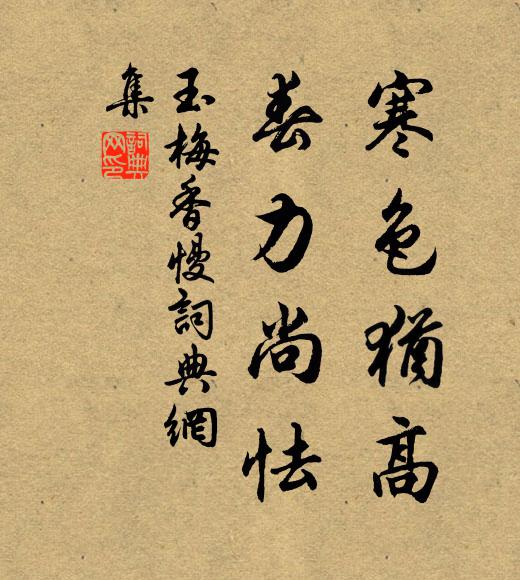 寒色猶高
春力尚怯
玉梅香慢詞典網
集
詞典
网印